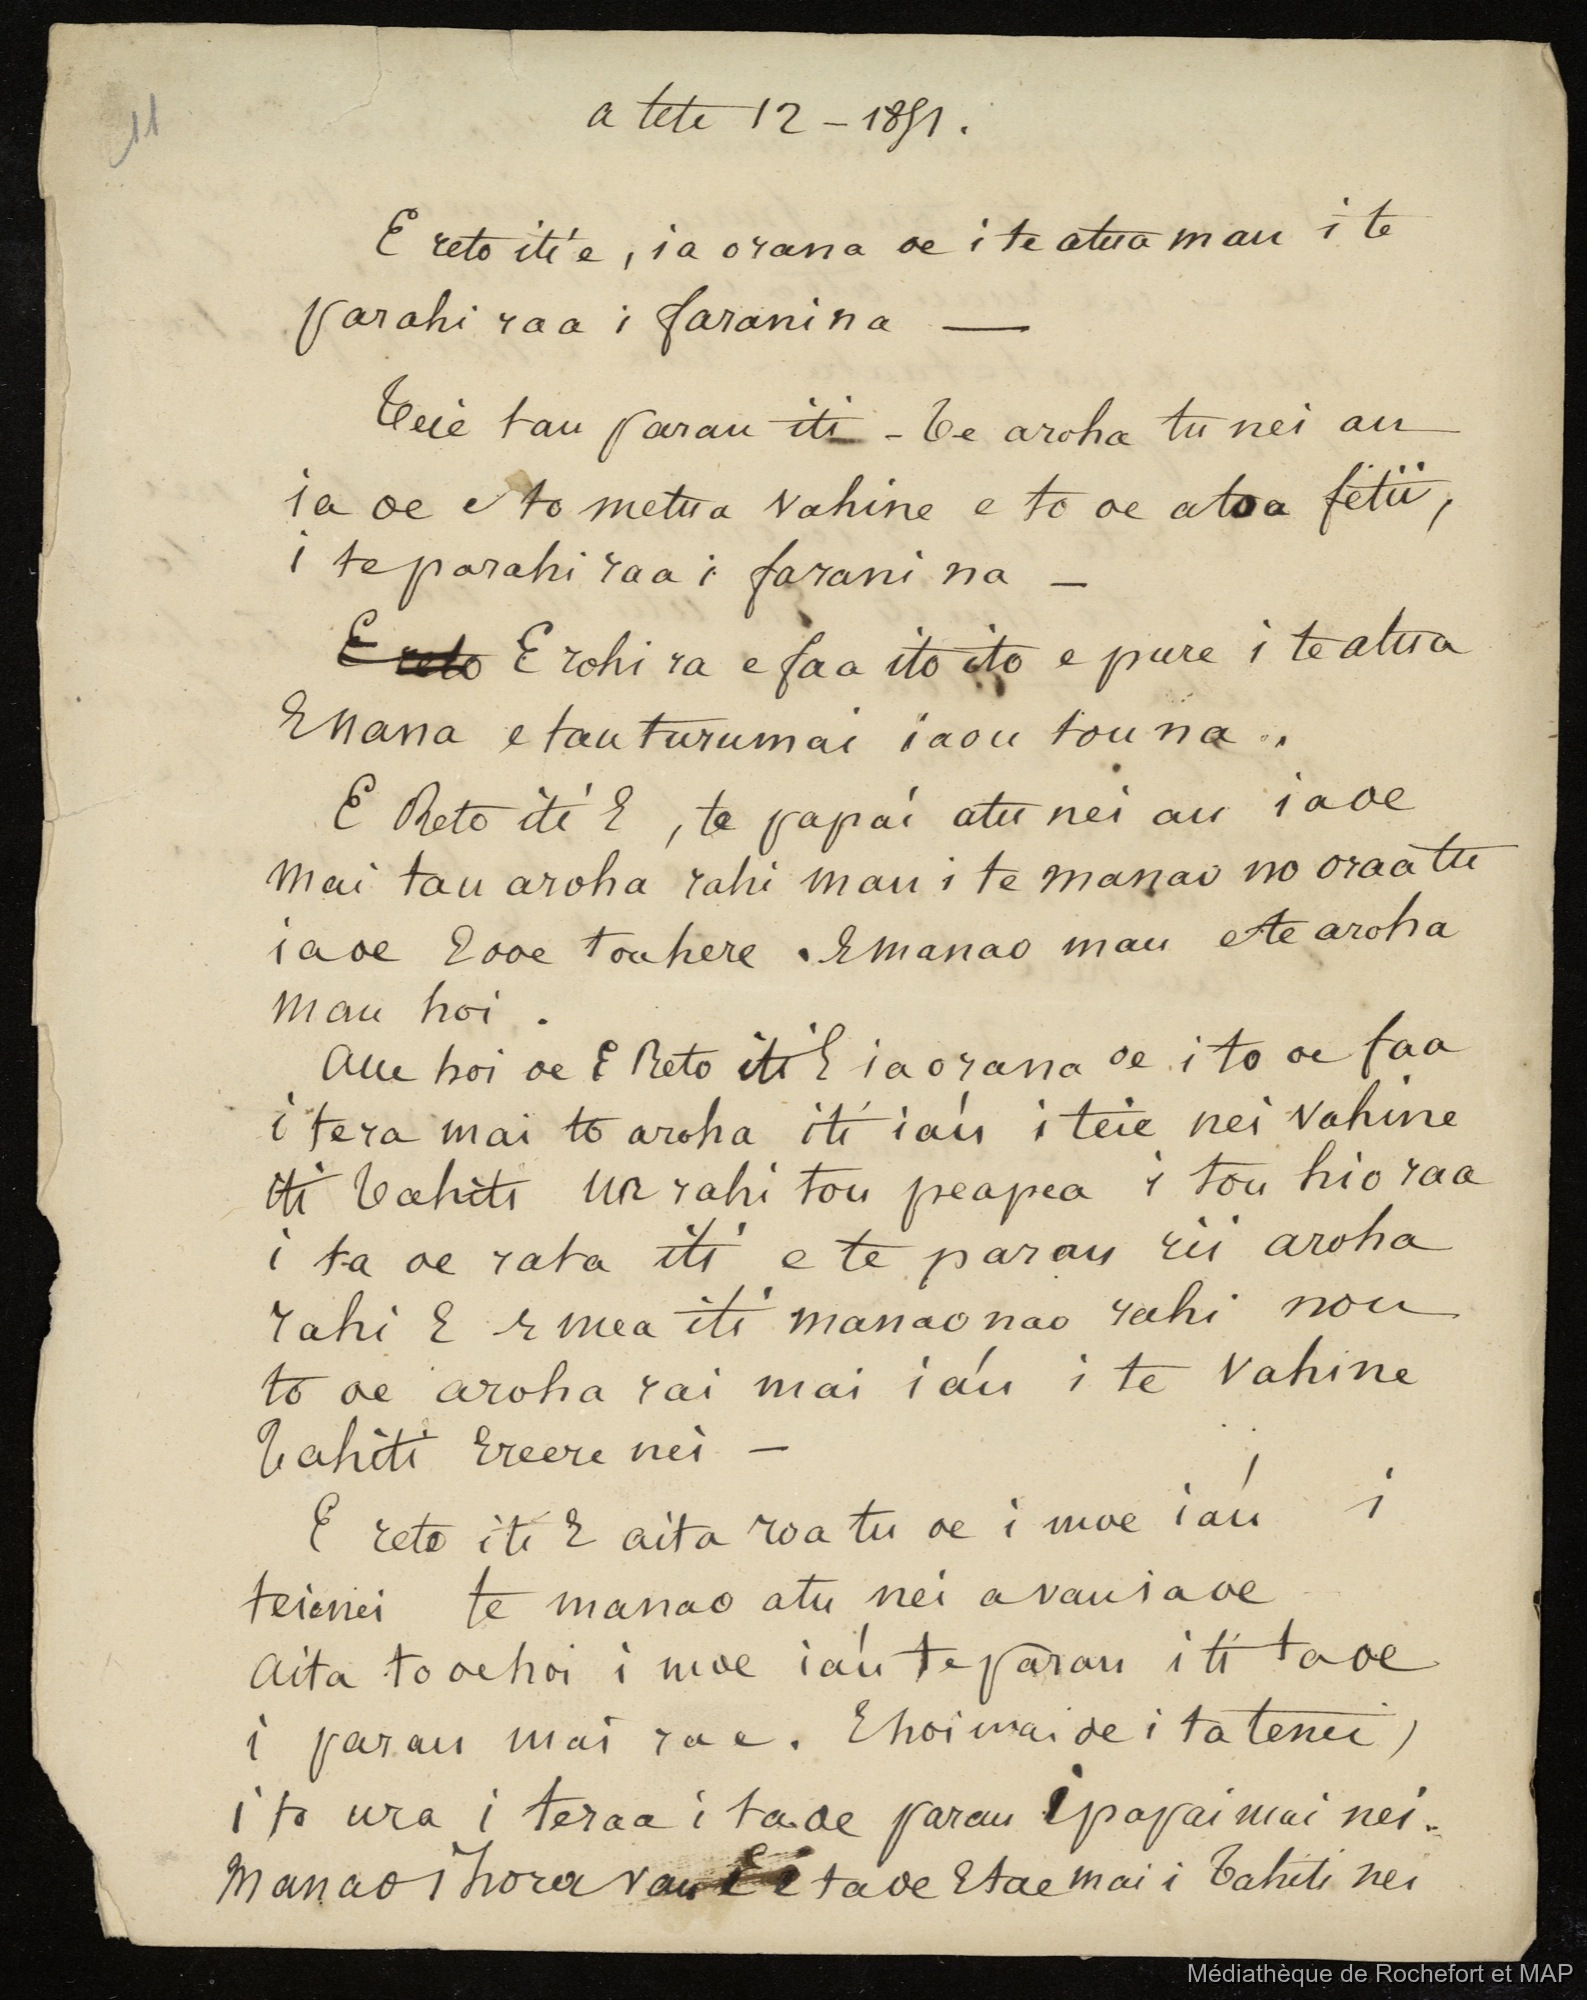 11
atete 12 – 1891.
E reto iti e, ia orana oe i te atua mau i te
parahi raa i faranina —
Teie tau parau iti – Te aroha tu nei au
ia oe e to metua vahine e to oe atoa fetii,
i te parahi raa i farani na –
E reto E rohi ra e faa ito ito e pure i te atua
E nana e tauturu mai iaou tou na..
E Reto iti E, te papai atu nei au iaoe
mai tau aroha rahi mau i te manao no oraatu
iaoe E ooe touhere. E manao mau e te aroha
mau hoi.
Aue hoi oe E Reto iti E ia orana oe i to oe faa
i tera mai to aroha iti iaú i teie nei vahine
iti Tahiti ua rahi tou peapea i tou hio raa
i ta oe rata iti e te parau rii aroha
rahi E e mea iti manaonao rahi nou
to oe aroha rai mai iaú i te vahine
Tahiti Ereere nei –
E reto iti E aita roa tu oe i moe iaú i
teienei te manao atu nei avau iaoe
Aita to oe hoi i moe iaú te parau iti taoe
i parau mai ra e. E hoi mai oe i ta tenei,
i to ura i teraa i taoe parau i papai mai nei..
Manao i hora vau E e taoe E tae mai i Tahiti nei
Médiathèque de Rochefort et MAP